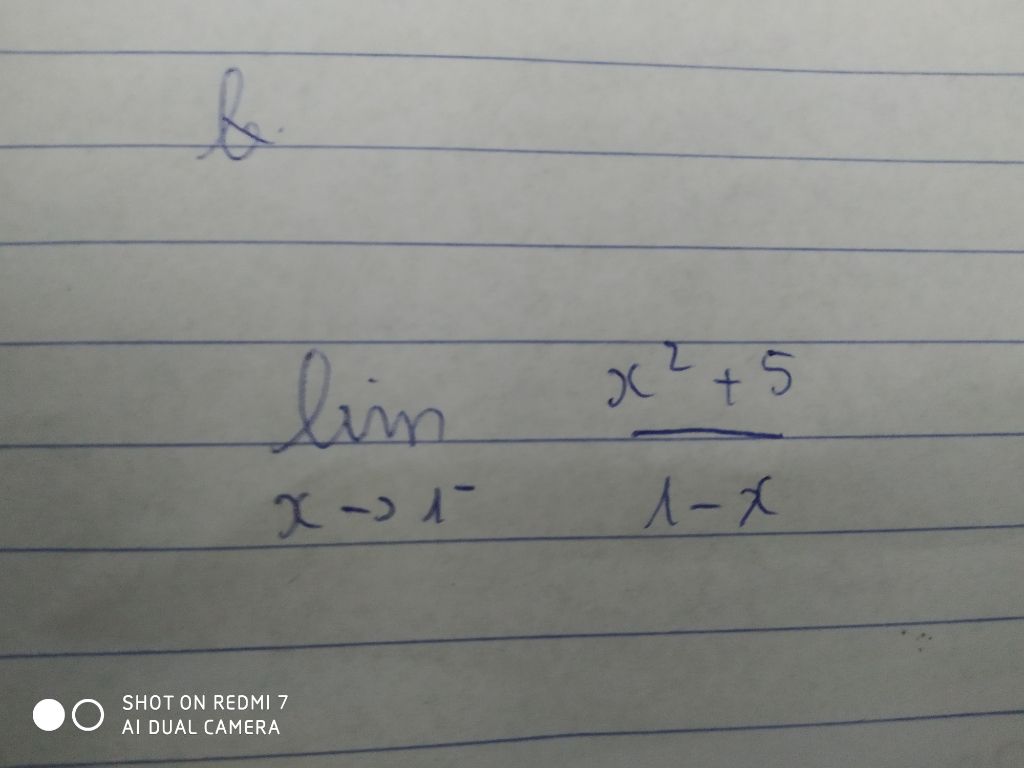 b.
lim x²+5
x→1⁻ 1-x
SHOT ON REDMI 7
AI DUAL CAMERA